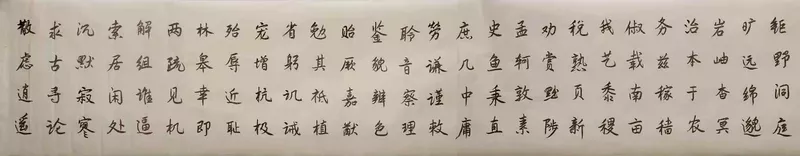 钜野洞庭
旷远绵邈
岩岫杳冥
治本于农
务兹稼穑
俶载南亩
我艺黍稷
税熟贡新
劝赏黜陟
孟轲敦素
史鱼秉直
庶几中庸
劳谦谨敕
聆音察理
鉴貌辨色
贻厥嘉猷
勉其祗植
省躬讥诫
宠增抗极
殆辱近耻
林皋幸即
两疏见机
解组谁逼
索居闲处
沉默寂寥
求古寻论
散虑逍遥